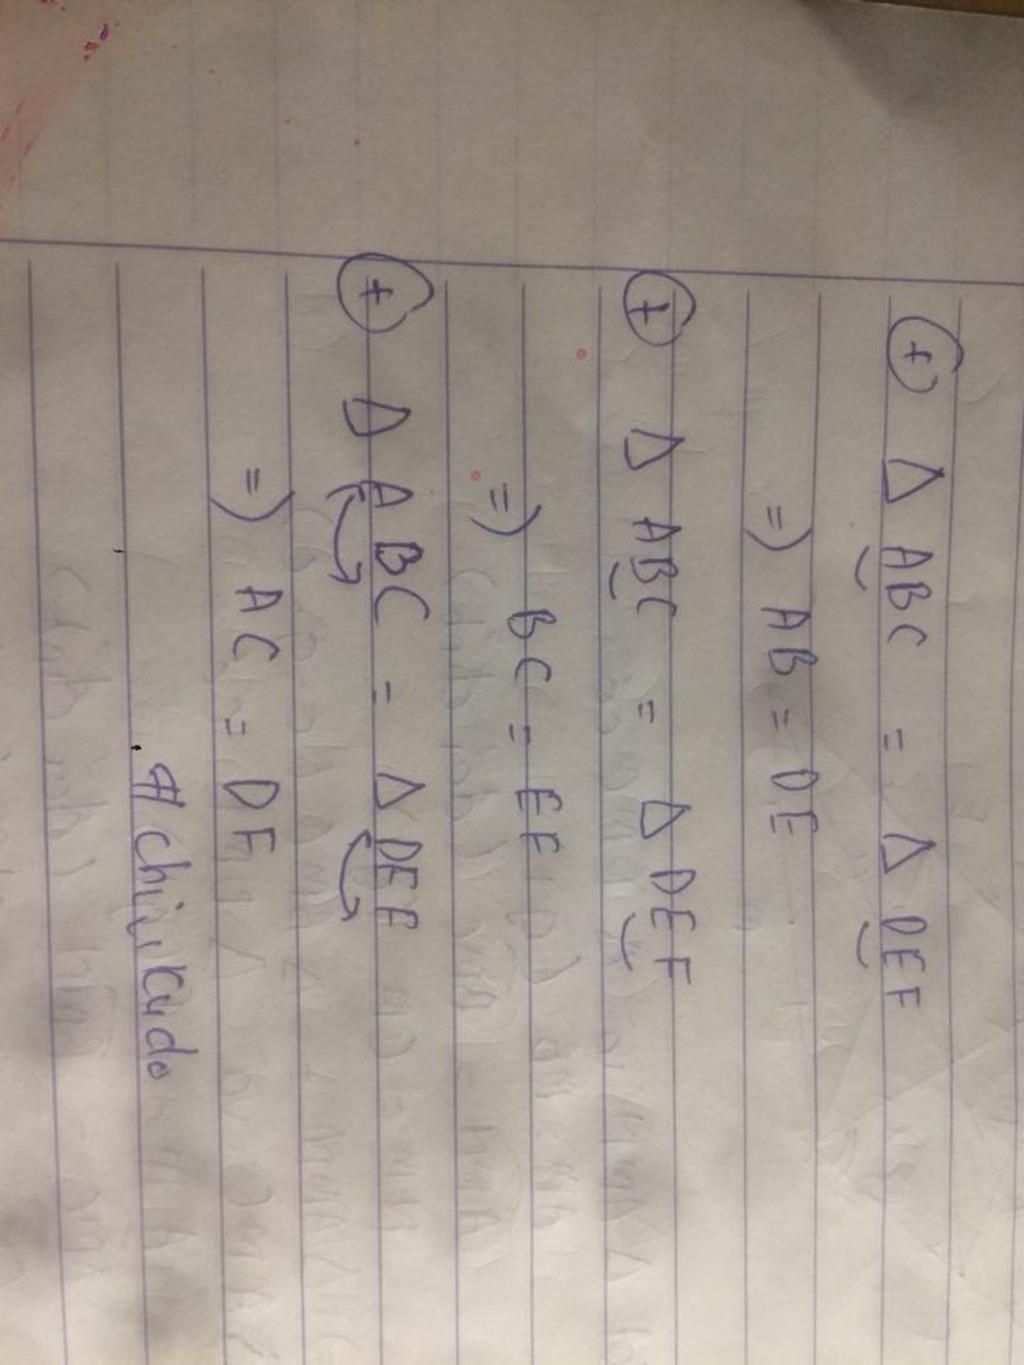 + Δ ABC = Δ DEF
=) AB = DE
+ Δ ABC = Δ DEF
=) BC = EF
+ Δ ABC = Δ DEF
=) AC = DF